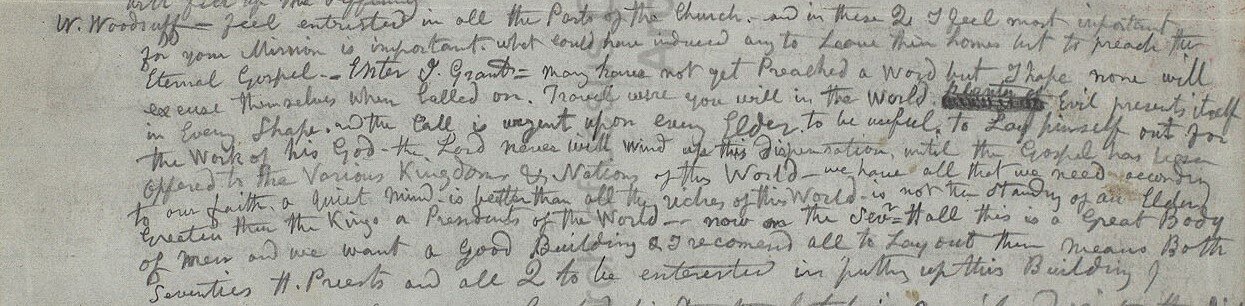 W. Woodruff = feel entrusted in all the Parts of the Church. and in these 2 I feel most important
for your Mission is important. what could have induced any to Leave their homes but to preach the
Eternal Gospel -- Enter J. Grant = many have not yet Preached a Word but I hope none will
excuse themselves when Called on. Travel were you will in the World Evil presents itself
in Every Shape. and the Call is urgent upon every Elder to be useful. to Lay himself out for
the Work of his God - the Lord never will wind up this Dispensation, until the Gospel has been
offered to the Various Kingdoms & Nations of this World - we have all that we need according
to our faith. a quiet mind is better than all the riches of this World - is not the standing of an Elder
Greater than the Kings a Presidents of the World -- now on the Sevs = Hall this is a Great Body
of men and we want a Good Building & I recomend all to Lay out their means Both
Seventies H. Priests and all 2 to be enterested in putting up this Building